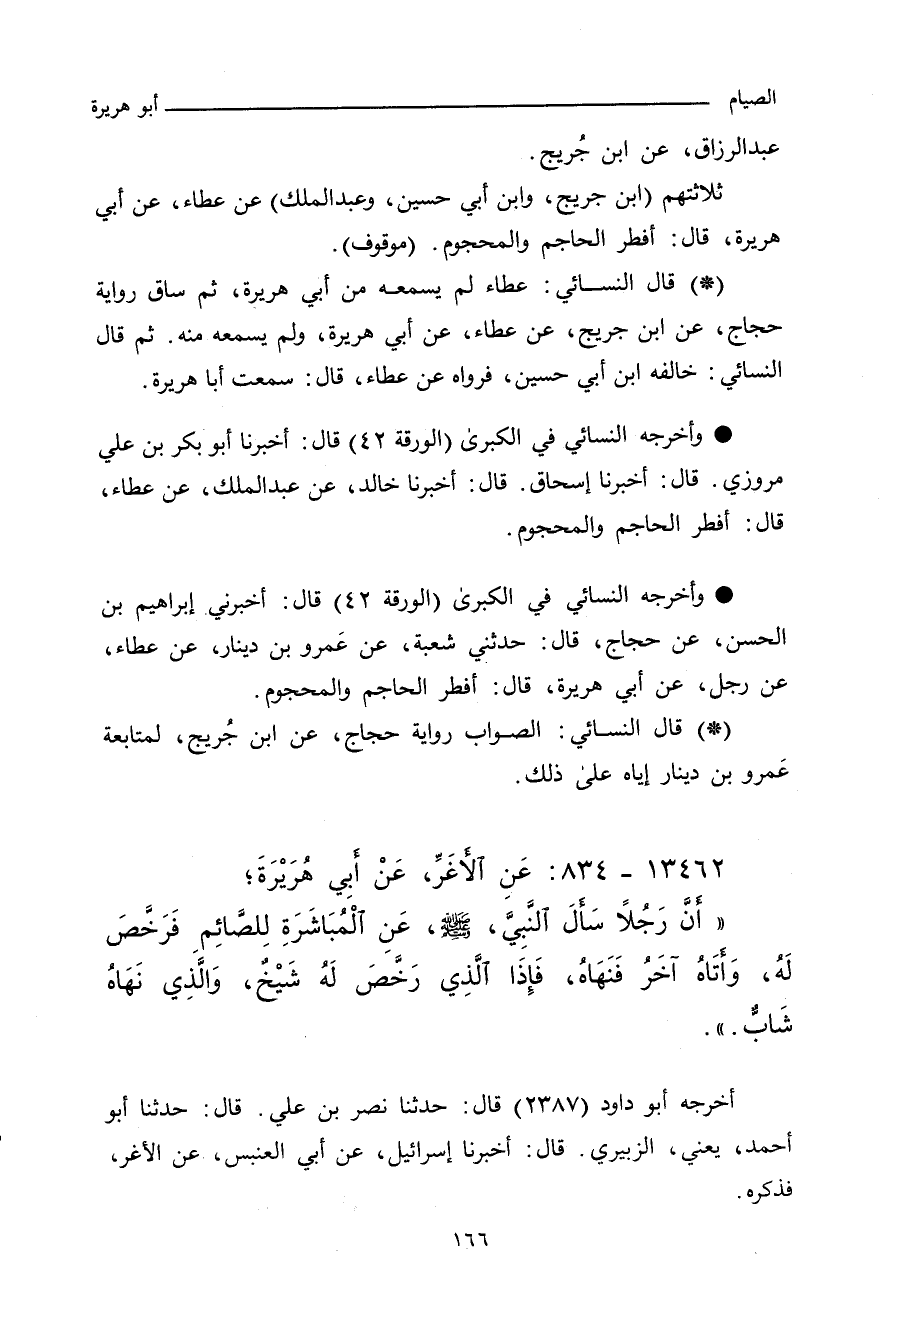 الصيام ــــــــــــــــــــ أبو هريرة
عبدالرزاق، عن ابن جُريج.
ثلاثتهم (ابن جريج، وابن أبي حسين، وعبدالملك) عن عطاء، عن أبي
هريرة، قال: أفطر الحاجم والمحجوم. (موقوف).
(*) قال النسائي: عطاء لم يسمعه من أبي هريرة، ثم ساق رواية
حجاج، عن ابن جريج، عن عطاء، عن أبي هريرة، ولم يسمعه منه. ثم قال
النسائي: خالفه ابن أبي حسين، فرواه عن عطاء، قال: سمعت أبا هريرة.
● وأخرجه النسائي في الكبرىٰ (الورقة ٤٢) قال: أخبرنا أبو بكر بن علي
مروزي. قال: أخبرنا إسحاق. قال: أخبرنا خالد، عن عبدالملك، عن عطاء،
قال: أفطر الحاجم والمحجوم.
● وأخرجه النسائي في الكبرىٰ (الورقة ٤٢) قال: أخبرني إبراهيم بن
الحسن، عن حجاج، قال: حدثني شعبة، عن عَمرو بن دينار، عن عطاء،
عن رجل، عن أبي هريرة، قال: أفطر الحاجم والمحجوم.
(*) قال النسائي: الصواب رواية حجاج، عن ابن جُريج، لمتابعة
عَمرو بن دينار إياه علىٰ ذلك.
١٣٤٦٢ - ٨٣٤: عَنِ ٱلْأَغَرِّ، عَنْ أَبِي هُرَيْرَةَ؛
« أَنَّ رَجُلاً سَأَلَ ٱلنَّبِيَّ، ﷺ، عَنِ ٱلْمُبَاشَرَةِ لِلصَّائِمِ فَرَخَّصَ
لَهُ، وَأَتَاهُ آخَرُ فَنَهَاهُ، فَإِذَا ٱلَّذِي رَخَّصَ لَهُ شَيْخٌ، وَالَّذِي نَهَاهُ
شَابٌّ.».
أخرجه أبو داود (٢٣٨٧) قال: حدثنا نصر بن علي. قال: حدثنا أبو
أحمد، يعني، الزبيري. قال: أخبرنا إسرائيل، عن أبي العنبس، عن الأغر،
فذكره.
١٦٦